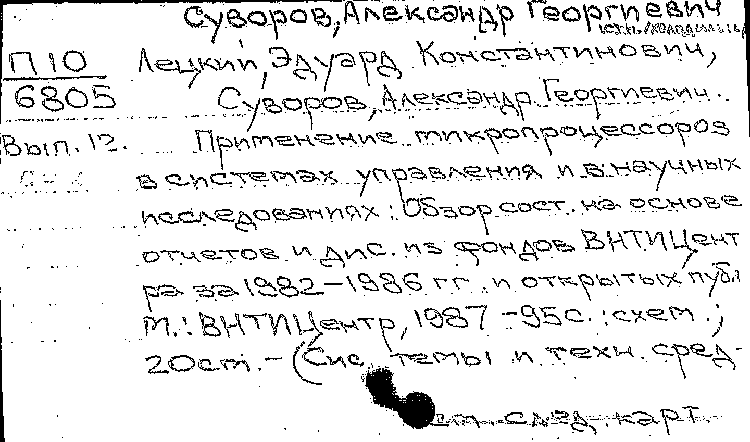 Суворов, Александр Георгиевич
П10 Лецкий, Эдуард Константинович,
6805 Суворов, Александр Георгиевич.
Вып. 12. Применение микропроцессоров
в системах управления и в научных
исследованиях: Обзор сост. на основе
отчетов и дис. из фондов ВНТИЦент
ра за 1982-1986 гг. и открытых публ
М.: ВНТИЦентр, 1987 - 95 с.: схем.;
20 см. - (Сис темы и техн. сред-
см. след. карт.